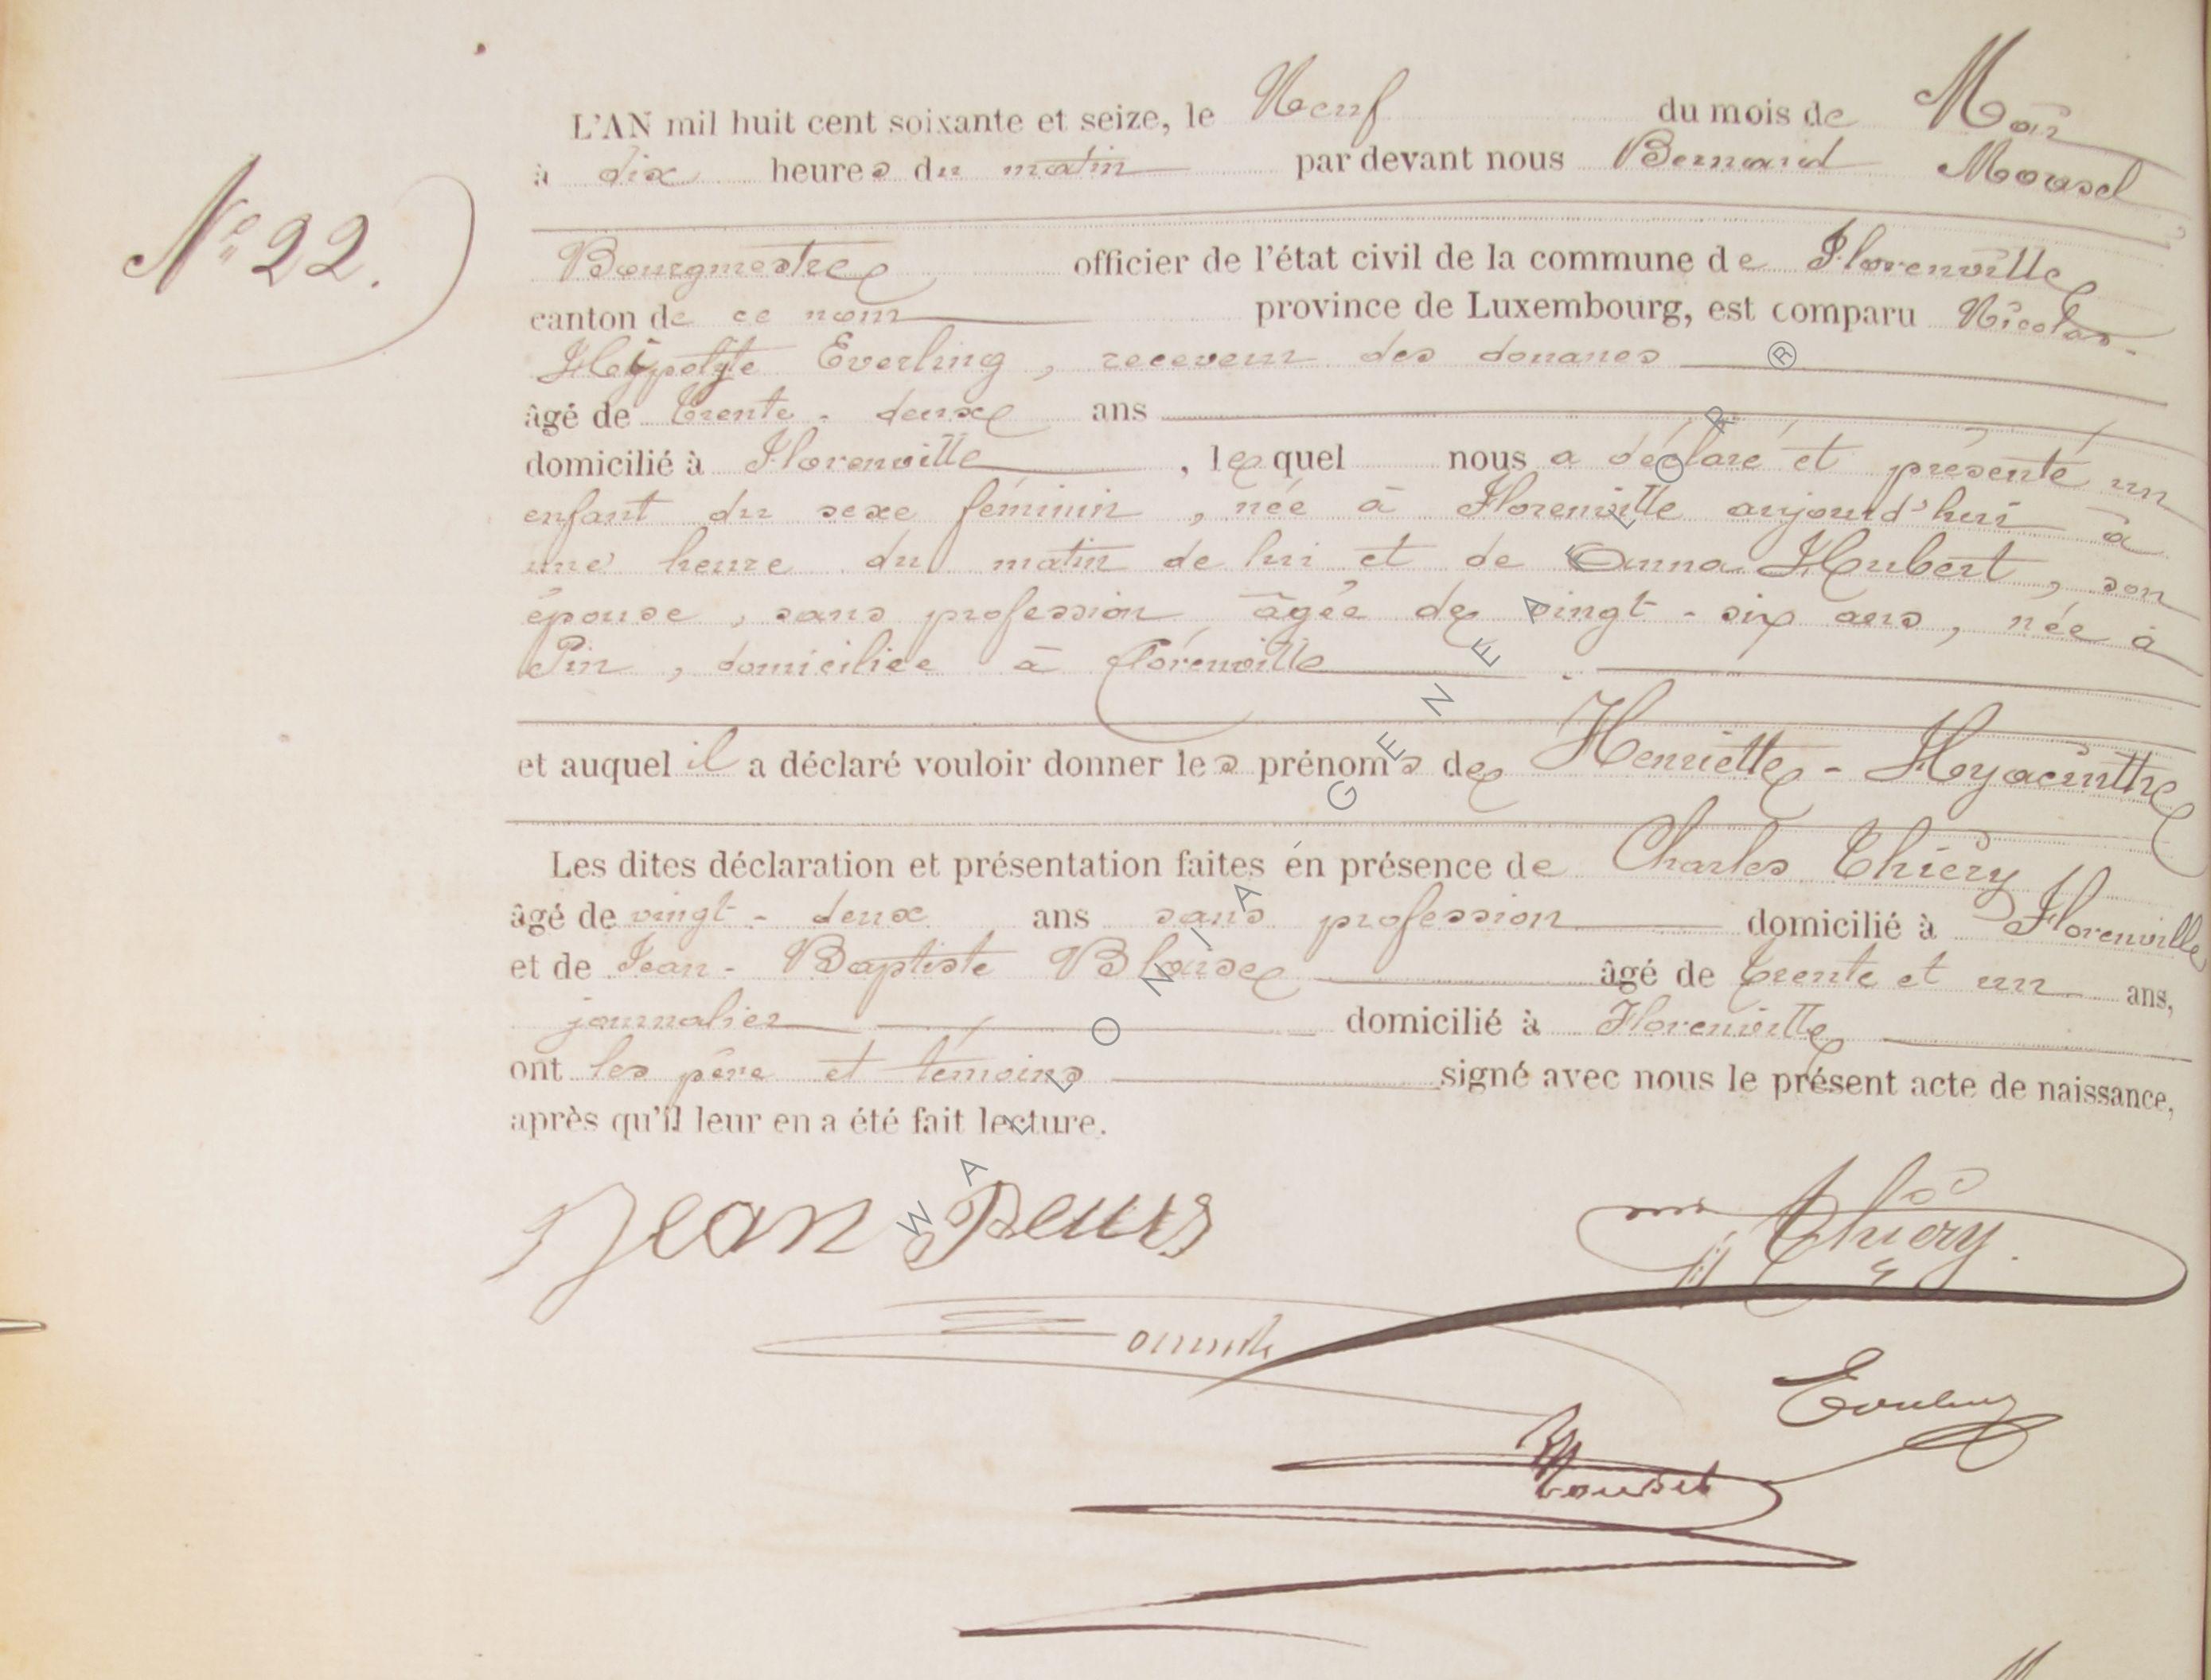 L'AN mil huit cent soixante et seize, le Neuf du mois de Mai
à dix heures du matin par devant nous Bernard Mousel
N° 22.
Bourgmestre officier de l'état civil de la commune de Florenville
canton de ce nom province de Luxembourg, est comparu Nicolas-
Hyppolyte Everling, receveur des douanes
âgé de trente-deux ans
domicilié à Florenville, lequel nous a déclaré et présenté un
enfant du sexe féminin, née à Florenville aujourd'hui à
une heure du matin de lui et de Anna Hubert, son
épouse, sans profession âgée de vingt-six ans, née à
Pin, domiciliée à Florenville
et auquel il a déclaré vouloir donner les prénoms de Henriette-Hyacinthe
Les dites déclaration et présentation faites en présence de Charles Thiéry
âgé de vingt-deux ans sans profession domicilié à Florenville
et de Jean-Baptiste Blaise âgé de trente et un ans,
journalier domicilié à Florenville
ont les père et témoins signé avec nous le présent acte de naissance,
après qu'il leur en a été fait lecture.
Jean
Thiéry
Everling
Mousel
WALLONIA GENEAFLOR ®